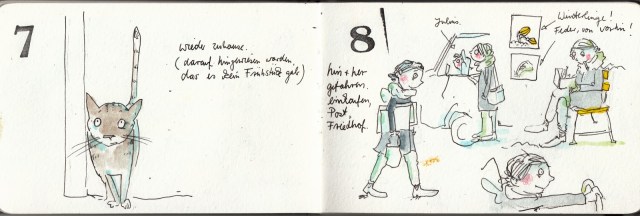 7
wieder zuhause.
(darauf hingewiesen worden,
das es kein Frühstück gab)
8
hin + her
gefahren.
einkaufen,
Post,
Friedhof.
Julius.
Winterlinge!
Feder, von vorhin!